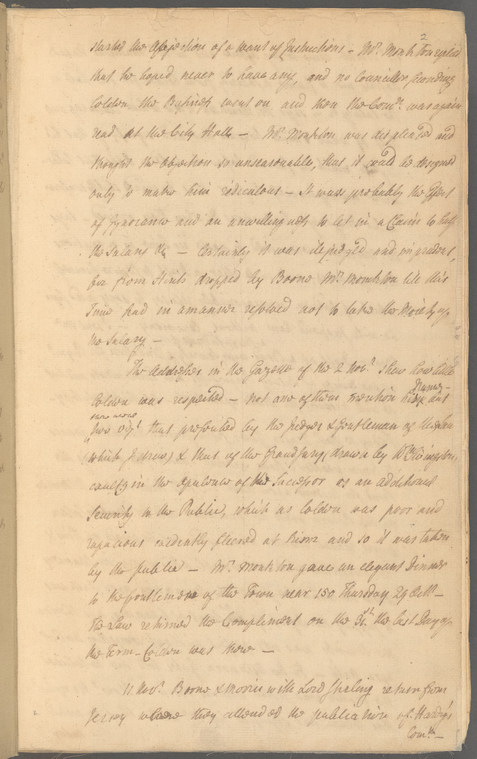 2
started the Objection of a want of Instructions - Mr. Monkton replied
that he hoped never to have any, and no Councillor seconding
Colden the Business went on and then the Comn. was again
read at the City Hall - Mr. Monkton was displeased and
thought the Objection so unseasonable, that it could be designed
only to make him rediculous - It was probably the Effect
of Ignorance and an unwillingness to let in a Claim to half
the Salary &c - Certainly it was illjudged and imprudent,
for from Hints dropped by Boone Mr. Monkton till this
Time had in a manner resolved not to take the Moiety of
the Salary -
The Addresses in the Gazette of the 2 Novr. shew how little
Colden was respected - not one of them mention him and
two viz. that presented by the Judges & Gentlemen of
(which I drew) & that of the Grand Jury, drawn by Wm. Livingston,
exults in the Opulence of the Successor as an additional
Security to the Public, which as Colden was poor and
rapacious evidently fleered at him and so it was taken
by the public - Mr. Monkton gave an elegant Dinner
to the Gentlemen of the Town near 150 Thursday 29 Octr. -
The Law returned the Compliment on the the last Day of
the Term - Colden was there -
11 Novr. Boone & Morris with Lord Sterling return from
Jersey where they attended the publication of Hardy's
Comn. -